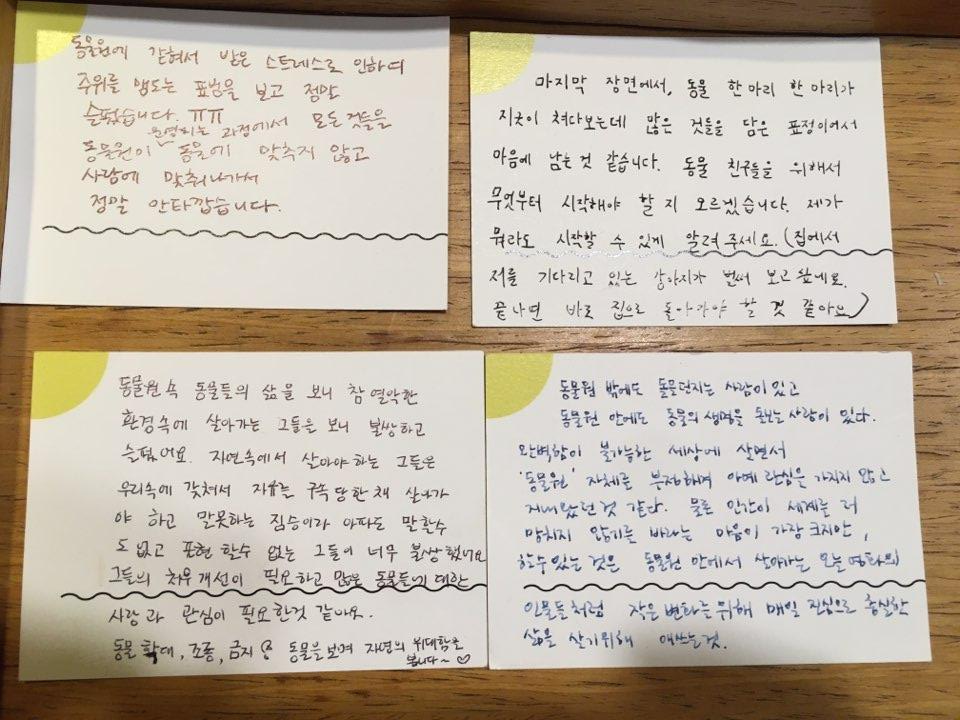 동물원에 갇혀서 받은 스트레스로 인하여
주위를 맴도는 표범을 보고 정말
슬펐습니다. ㅠㅠ
운영되는 과정에서 모든 것들을
동물원이 동물에 맞추지 않고
사람에 맞춰나가서
정말 안타깝습니다.
마지막 장면에서, 동물 한마리 한마리가
지긋이 쳐다보는데 많은 것들을 담은 표정이어서
마음에 남는 것 같습니다. 동물 친구들을 위해서
무엇부터 시작해야 할 지 모르겠습니다. 제가
뭐라도 시작할 수 있게 알려주세요. (집에서
저를 기다리고 있는 강아지가 벌써 보고 싶네요.
끝나면 바로 집으로 돌아가야 할 것 같아요)
동물원 속 동물들의 삶을 보니 참 열악한
환경속에 살아가는 그들을 보니 불쌍하고
슬펐어요. 자연속에서 살아야하는 그들은
우리속에 갖쳐서 자유를 구속 당한채 살아가
야 하고 말못하는 짐승이라 아파도 말할수
도 없고 표현 할수 없는 그들이 너무 불쌍했어요
그들의 처우개선이 필요하고 많은 동물들에 대한
사랑과 관심이 필요한것 같아요.
동물 학대, 조롱, 금지 동물을 보며 자연의 위대함을
봅니다~ ♡
동물원 밖에도 돌을던지는 사람이 있고
동물원 안에도 동물의 생명을 돌보는 사람이 있다.
완벽함이 불가능한 세상에 살면서
'동물원' 자체를 부정하며 아예 관심을 가지지 않고
지내왔던 것 같다. 물론 인간이 세계를 더
망치지 않기를 바라는 마음이 가장 크지만,
할수 있는 것은 동물원 안에서 살아가는 오늘 영화의
인물들처럼 작은 변화를 위해 매일 진심으로 충실한
삶을 살기위해 애쓰는것.